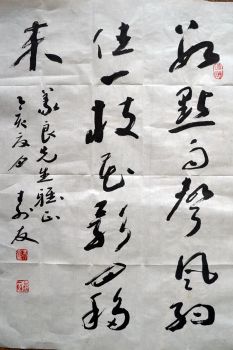 數點雨聲風約
住一枝花影月移
來
義良先生雅正
乙亥夏月
友